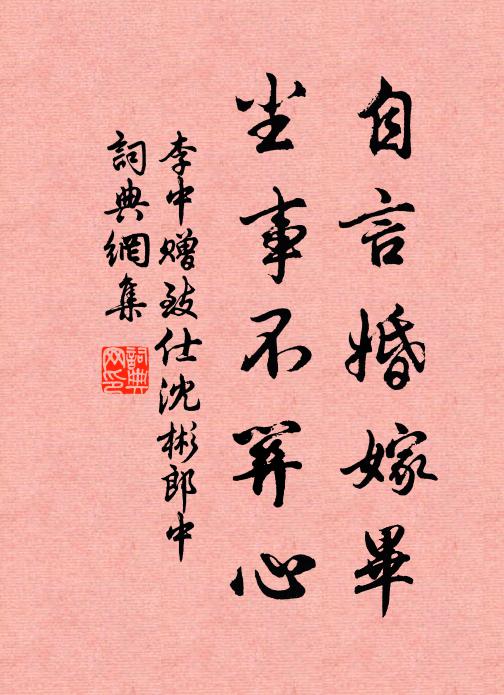 自言婚嫁畢
尘事不關心
李中贈致仕沈彬郎中
詞典網集
詞典
网印